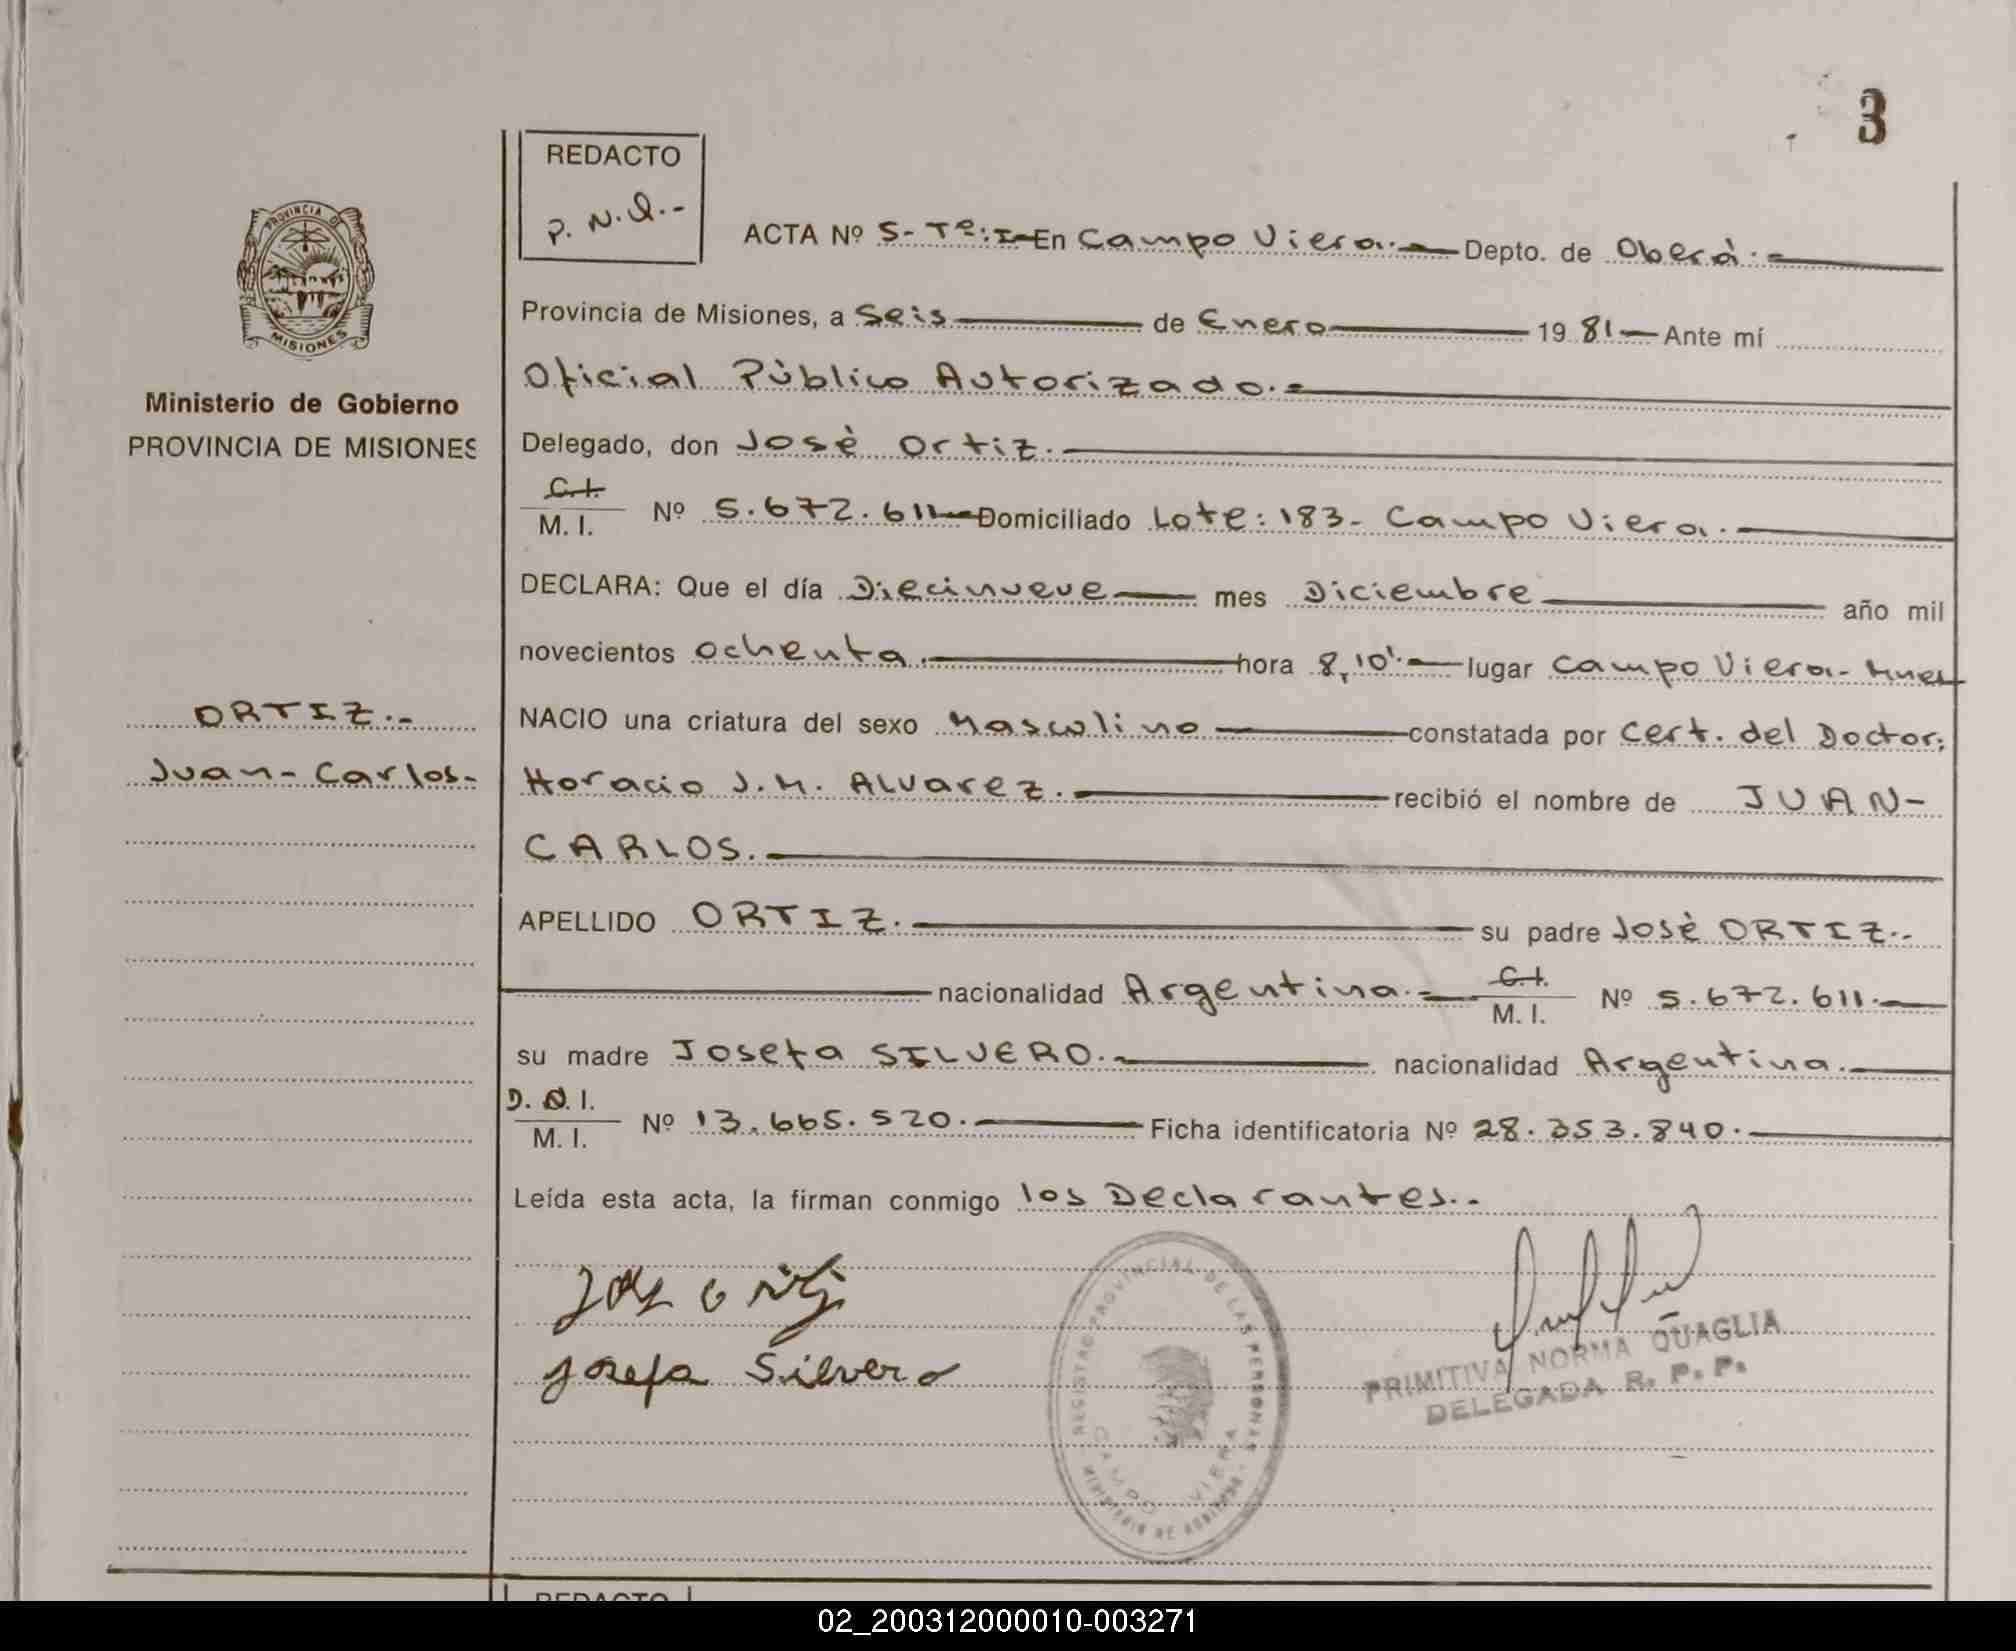 3
REDACTO
P. N. Q.-
PROVINCIA DE
MISIONES
Ministerio de Gobierno
PROVINCIA DE MISIONES
ACTA Nº 5- Tº: I- En Campo Viera.- Depto. de Oberà.-
Provincia de Misiones, a Seis de Enero 19 81 Ante mí
Oficial Pùblico Autorizado.-
Delegado, don Josè Ortiz.
C.I.
M. I. Nº 5.672.611 Domiciliado Lote: 183- Campo Viera.
DECLARA: Que el día Diecinueve mes Diciembre año mil
novecientos ochenta. hora 8,10'. lugar Campo Viera-
ORTIZ.-
Juan-Carlos-
NACIO una criatura del sexo Masculino constatada por Cert. del Doctor:
Horacio J.M. Alvarez. recibió el nombre de JUAN-
CARLOS.
APELLIDO ORTIZ. su padre Josè ORTIZ.-
nacionalidad Argentina.- C.I.
M. I. Nº 5.672.611.
su madre Josefa SILVERO.- nacionalidad Argentina.
D. N. I.
M. I. Nº 13.665.520. Ficha identificatoria Nº 28.353.840.
Leída esta acta, la firman conmigo los Declarantes.-
Josefa Silvero
REGISTRO PROVINCIAL DE LAS PERSONAS
MINISTERIO DE GOBIERNO
CAMPO VIERA
PRIMITIVA NORMA QUAGLIA
DELEGADA R. P. P.
REDACTO
02_200312000010-003271